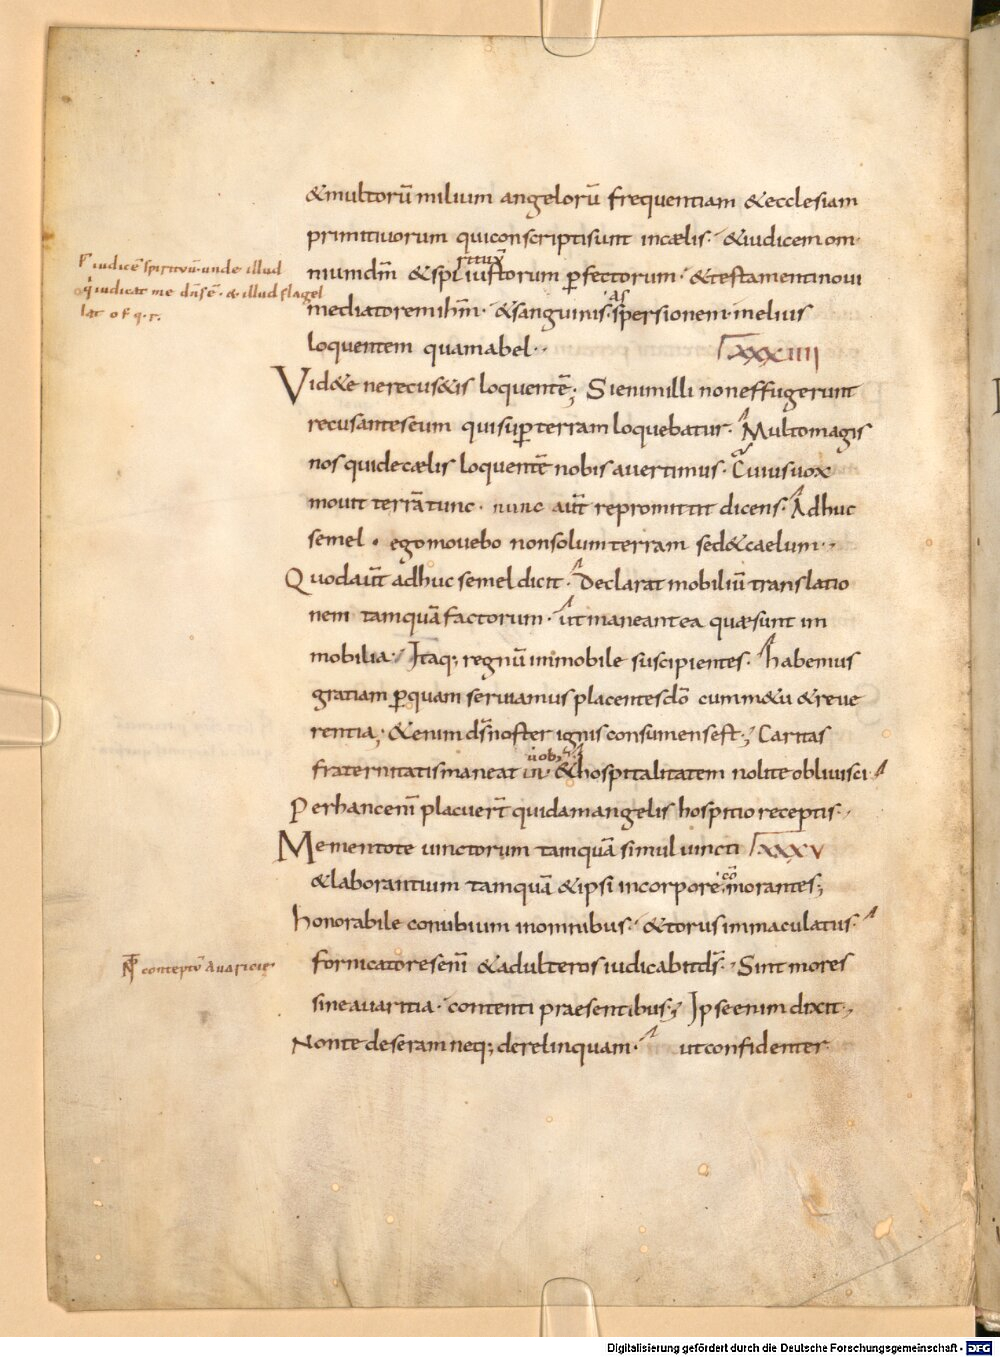 &multorū milium angelorū frequentiam &ecclesiam
primitiuorum quiconscriptisunt incælis· &iudicem om
niumdm̄ &spī iustorum p̄fectorum· &testamentinoui
rituū
F iudicē spirituū· unde illud
q iudicat me dn̄s ē· & illud flagel
lat oēq·r·
mediatoremihm̄· &sanguinis spersionem· melius
as
loquentem quamabel··
XXXIIII
Vid&e nerecus&is loquentē; Sienimilli noneffugerunt
recusanteseum quisup̄terramloquebatur· Multomagis
nos quidecælis loquentē nobis auertimus· Cuiusuox
mouit terrā tunc· nunc aūt repromittit dicens· Adhuc
semel· egomouebo nonsolumterram sed&caelum··
Quodaūt adhucsemeldicit· Declarat mobiliū translatio
nem tamquāfactorum· utmaneantea quæsunt im
mobilia· Itaq; regnū immobile suscipientes· habemus
gratiam p̄quam seruiamus placentesdō cumm&u &reue
rentia; &enim ds̄noster ignis consumensest; Caritas
uob;
fraternitatismaneat in &hospitalitatem nolite obliuisci
Perhancenī placuer̄t quidamangelis hospitio receptis·
Mementote uinctorum tamquā simul uincti XXXV
&laborantium tamquā &ipsi incorpore morantes;
honorabile conubium inomnibus· &torus immaculatus·
fornicatoresenī &adulteros iudicabitds̄· Sint mores
conteptū Auaricie
sineauaritia· contenti praesentibus; Ipseenim dixit·,
Nonte deseram neq; derelinquam· utconfidenter
Digitalisierung gefördert durch die Deutsche Forschungsgemeinschaft - DFG